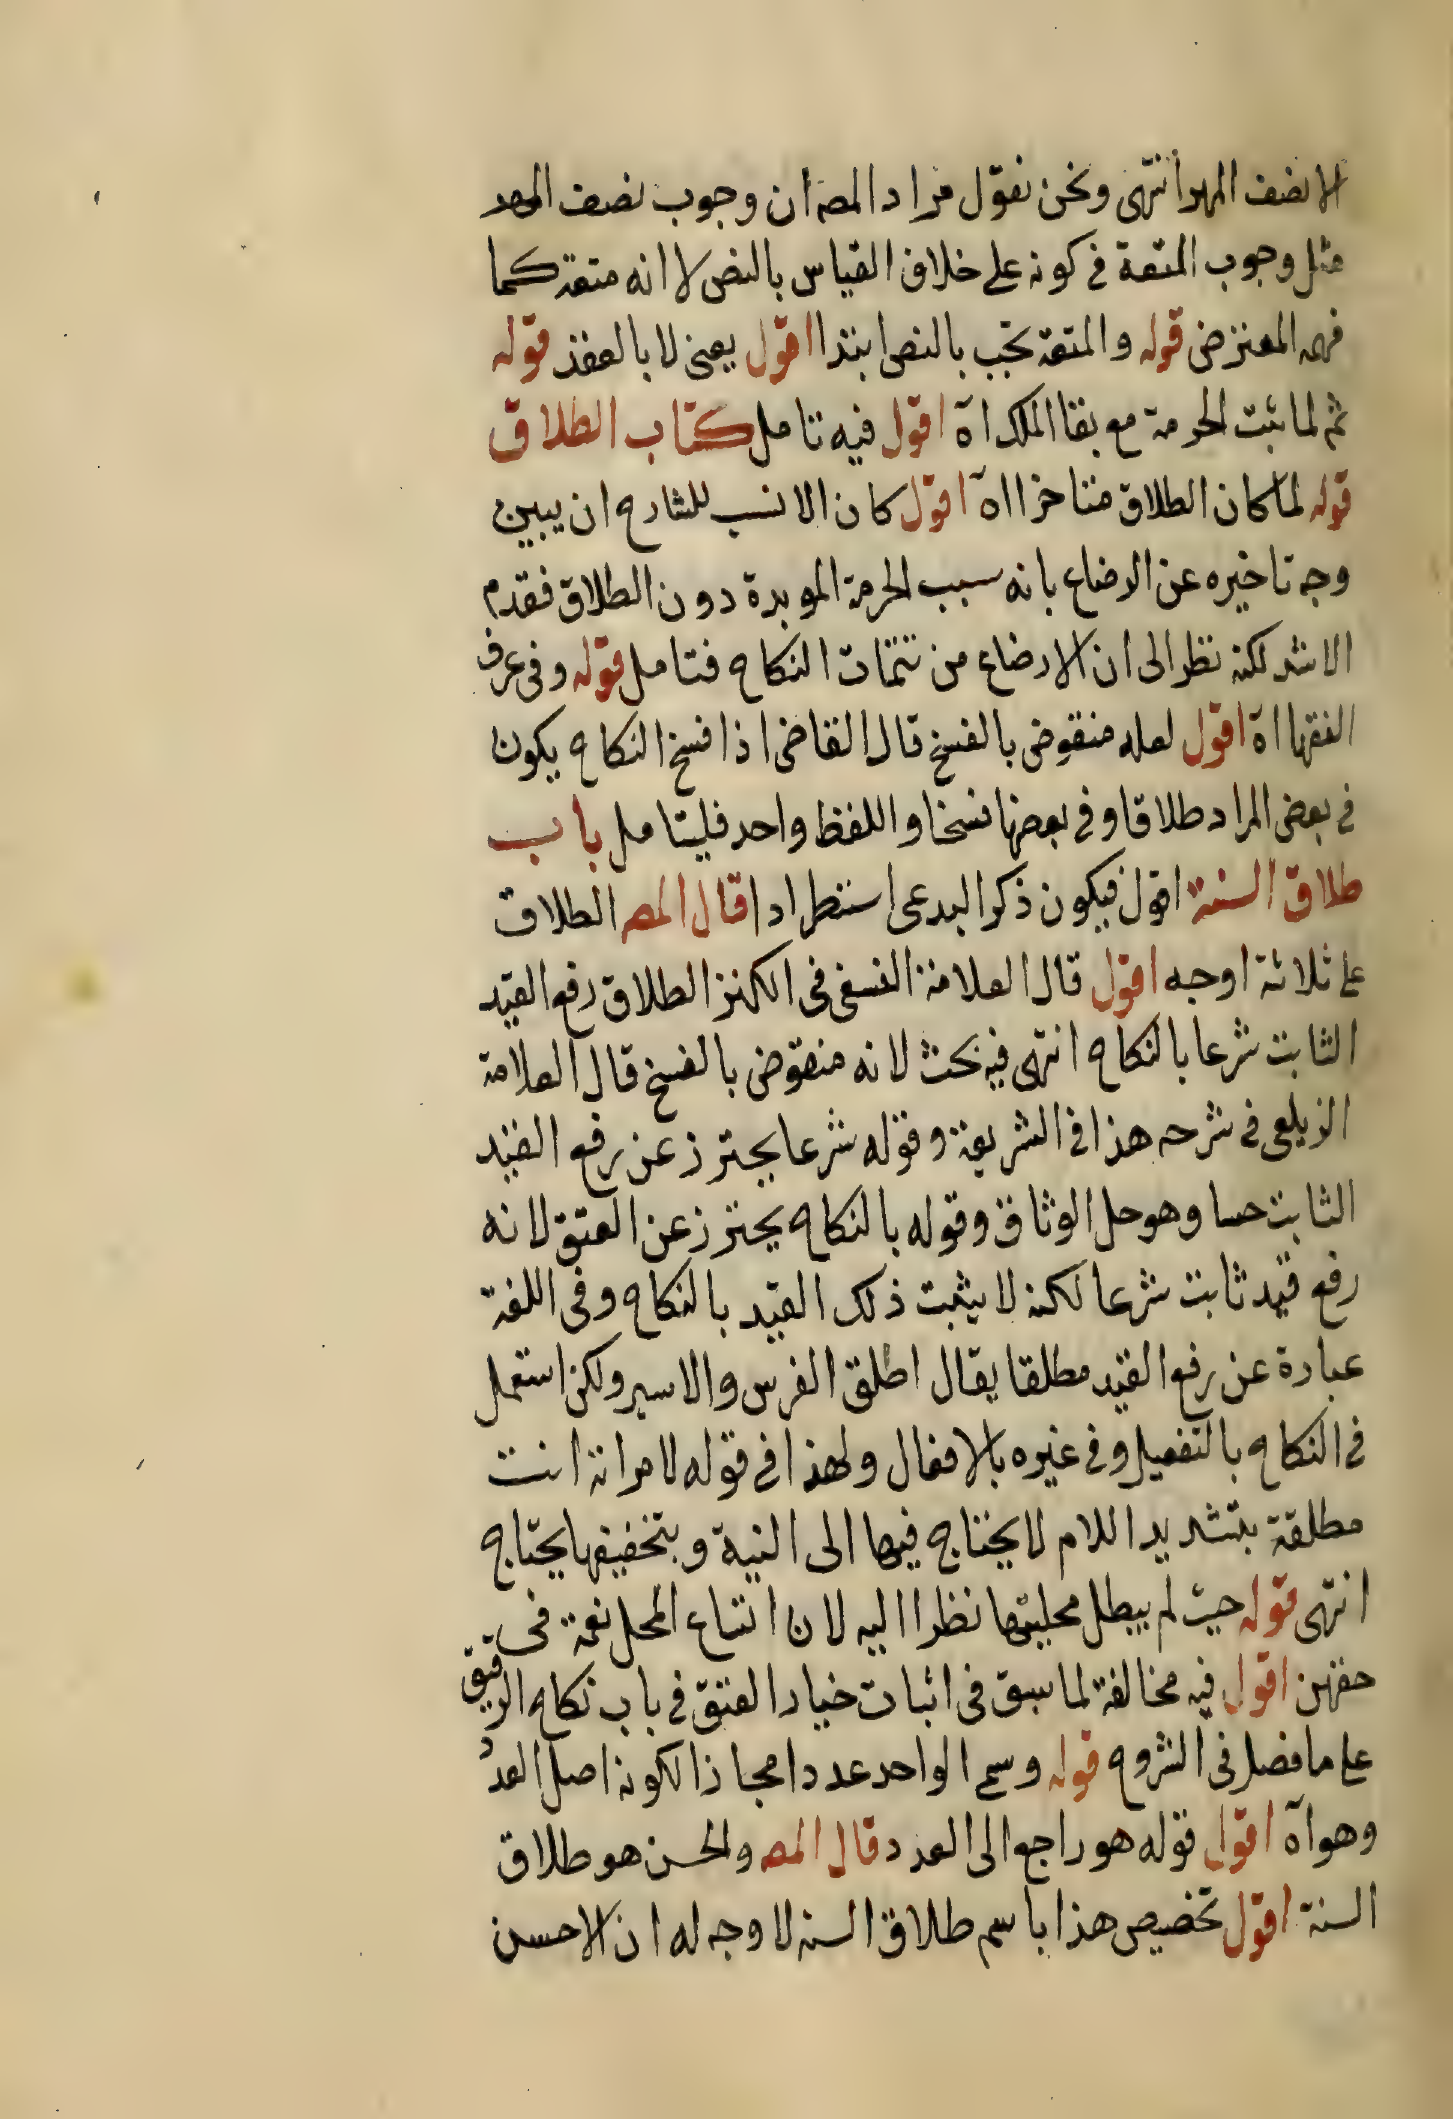 الا نصف المهر انتهى ونحن نقول مراد المصه ان وجوب نصف المهر
مثل وجوب المتعة فى كونه على خلاف القياس بالنص لا انه متعة كما
فهمه المعترض قوله والمتعة تجب بالنص ابتدا اقول يعنى لا بالعقد قوله
ثم لما ثبت الحرمة مع بقا الملك اه اقول فيه تامل كتاب الطلاق
قوله لما كان الطلاق متاخرا اه اقول كان الانسب للشارح ان يبين
وجه تاخيره عن الرضاع بانه سبب الحرمة الموبدة دون الطلاق فقدم
الاشد لكنه نظر الى ان الارضاع من تتمات النكاح فتامل قوله وفى عرف
الفقها اه اقول لعله منقوض بالفسخ قال القاضى اذا فسخ النكاح يكون
فى بعض المراد طلاقا وفى بعضها فسخا واللفظ واحد فليتامل باب
طلاق السنة اقول فيكون ذكر البدعى استطرادا قال المصه الطلاق
على ثلاثة اوجه اقول قال العلامة النسفى فى الكنز الطلاق رفع القيد
الثابت شرعا بالنكاح انتهى فيه بحث لانه منقوض بالفسخ قال العلامة
الزيلعى فى شرحه هذا فى الشريعة وقوله شرعا يحترز عن رفع القيد
الثابت حسا وهو حل الوثاق وقوله بالنكاح يحترز عن العتق لانه
رفع قيد ثابت شرعا لكنه لا يثبت ذلك القيد بالنكاح وفى اللغة
عبارة عن رفع القيد مطلقا يقال اطلق الفرس والاسير ولكن استعمل
فى النكاح بالتفعيل وفى غيره بالافعال ولهذا فى قوله لامراته انت
مطلقة بتشديد اللام لا يحتاج فيها الى النية وبتخفيفها يحتاج
انتهى قوله حيث لم يبطل محليتها نظرا اليه لان اتساع المحل نعمة فى
حقهن اقول فيه مخالفة لما سبق فى اثبات خيار العتق فى باب نكاح الرقيق
على ما فصل فى الشروح قوله وسمى الواحد عددا مجازا لكونه اصل العدد
وهو اه اقول قوله هو راجع الى العدد قال المصه والحسن هو طلاق
السنة اقول تخصيص هذا باسم طلاق السنه لا وجه له ان الاحسن